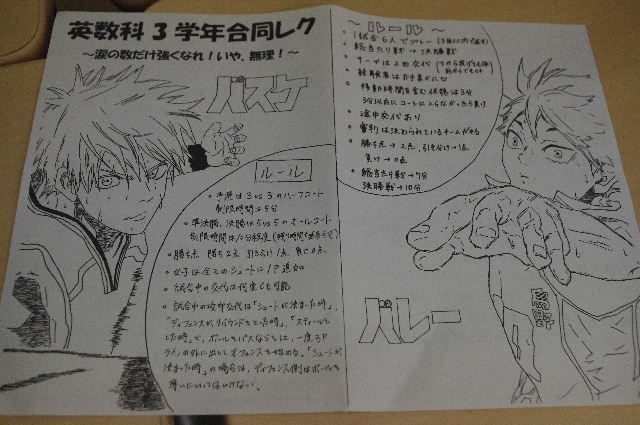 英数科3学年合同レク
～涙の数だけ強くなれ！いや、無理！～
バスケ
ルール
・予選は3vs3のハーフコート
制限時間は5分
・準決勝、決勝は5vs5のオールコート
・勝ち点 勝ち2点 引き分け1点 負け0点
・女子は全てのシュートに1P追加
・試合中の交代は何度でも可能
・試合中の攻守交代は「シュートが決まった時」、
「ディフェンスがリバウンドをとった時」、「スティールを
した時」で、ボールをパスなどをし、一度3P
ラインの外に出してオフェンスを始める。「シュートが
決まった時」の場合は、ディフェンス側はボールを
奪いにいってはいけない。
～ルール～
・1試合6人でプレー
・総当たり戦→決勝戦
・サーブは2回交代
・経験者はお手柔かに
・移動時間を含む休憩は3分
3分以内にコートに入らなかったら負け
・途中交代あり
・審判は決められているチームがやる
・勝ち点→2点、引き分け→1点
負け→0点
・総当たり戦→7分
決勝戦→10分
バレー
烏野